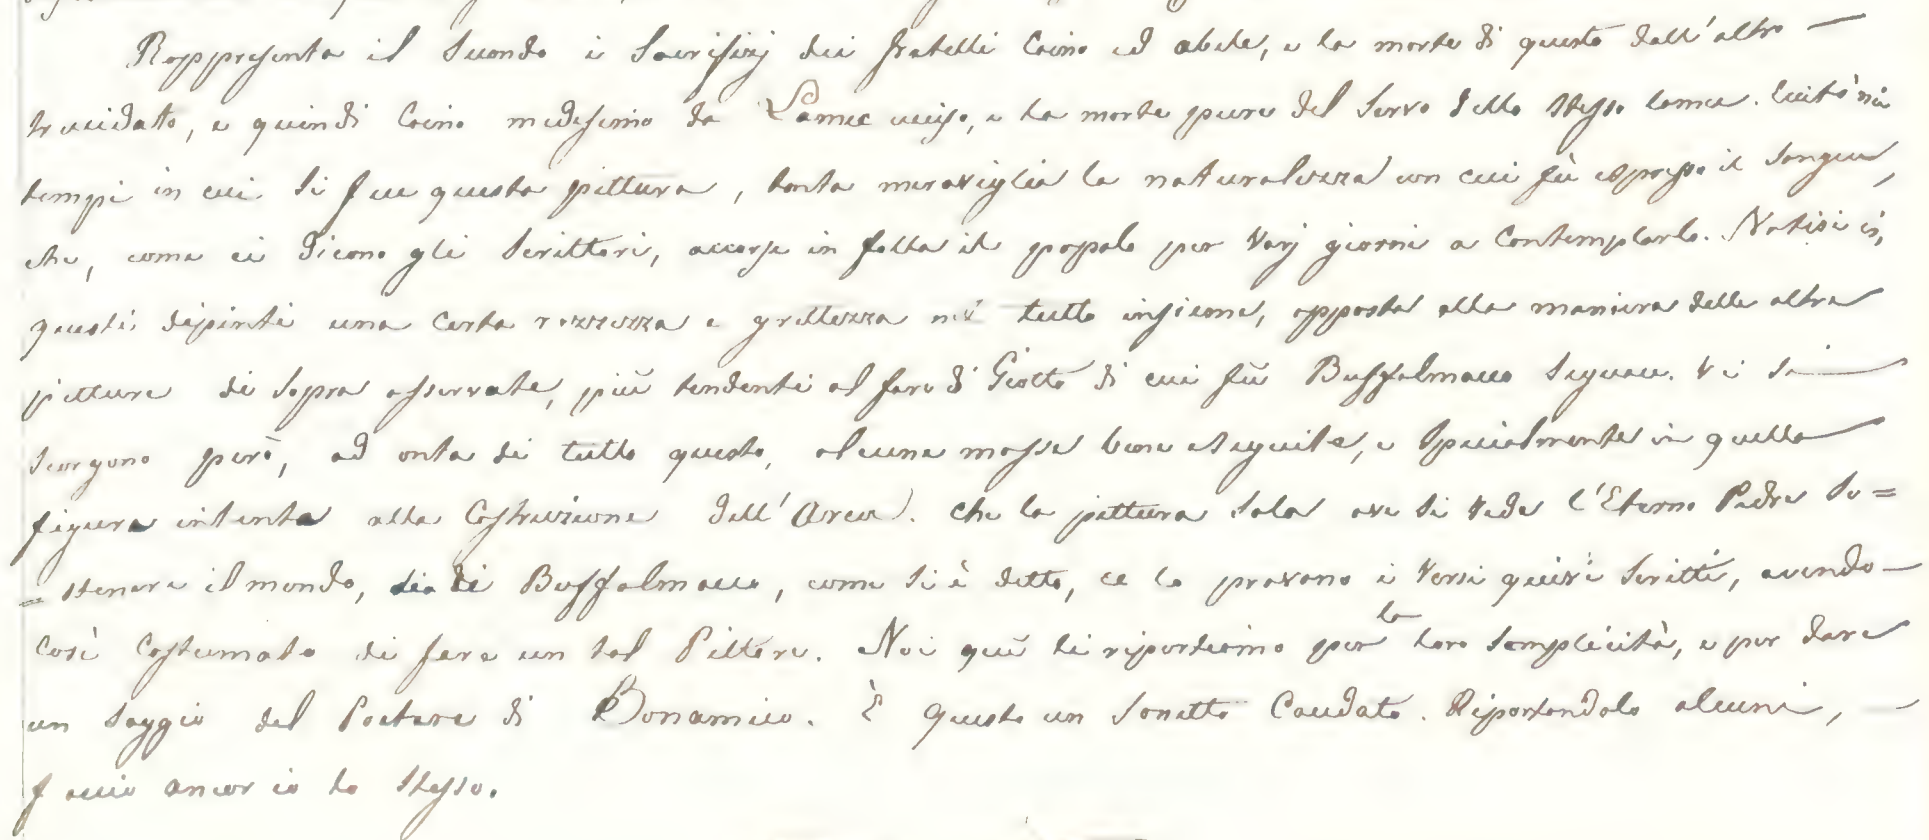 Rappresenta il Secondo i Sacrifizj dei fratelli Caino ed abele, e la morte di questo dall'altro —
trucidato, e quindi Caino medesimo da Lamec ucciso, e la morte pure del Servo dello stesso Lamec. Eccitò nei
tempi in cui si fece questa pittura, tanta meraviglia la naturalezza con cui fù espresso il Sangue,
che, come ci dicono gli Scrittori, accorse in folla il popolo per varj giorni a Contemplarlo. Notisi in
questi dipinti una certa rozzezza e grettezza nel tutto insieme, opposta alla maniera delle altre
pitture di Sopra osservate, più tendenti al fare di Giotto di cui fù Buffalmacco Seguace. Vi si —
scorgono però, ad onta di tutto questo, alcune mosse bene eseguite, e Specialmente in quella
figura intenta alla Costruzione dell'Arca. Che la pittura Sola ove si vede l'Eterno Padre So=
=stenere il mondo, sia di Buffalmacco, come si è detto, ce lo provano i Versi quivi Scritti, avendo —
Così Costumato di fare un tal Pittore. Noi quì li riportiamo per la loro Semplicità, e per dare
un Saggio del Poetare di Bonamico. È questo un Sonetto Caudato. Riportandolo alcuni, —
faccio ancor io lo Stesso.